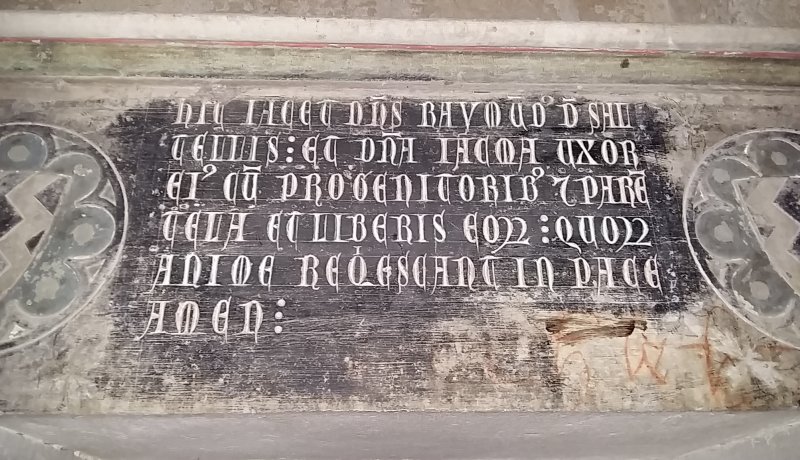 hIC IACET DN̄S RAYMŪD᾽ D̄ SALI
TELLIS ⁝ ET DN̄A IACMA UXOR
EI᾽ CŪ PROGENITORIB᾽ ⁊ PARĒ
TELA ET LIBERIS EOꝝ ⁝ QUOꝝ
ANIME REQⁱESCANT IN PACE
AMEN ⁝